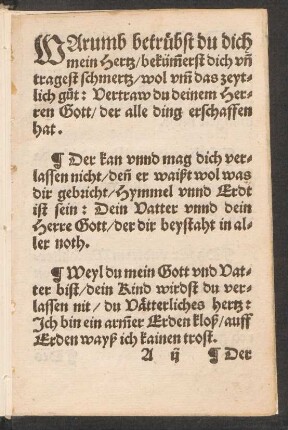 WArumb betrübst du dich
mein Hertz/bekům̃erst dich vñ
tragest schmertz/wol vm̃ das zeyt-
lich gůt: Vertraw du deinem Her-
ren Gott/der alle ding erschaffen
hat.
¶ Der kan vnnd mag dich ver-
lassen nicht/deñ er waißt wol was
dir gebricht/Hymmel vnnd Erdt
ist sein: Dein Vatter vnnd dein
Herre Gott/der dir beystaht in al-
ler noth.
¶ Weyl du mein Gott vnd Vat-
ter bist/dein Kind wirdst du ver-
lassen nit/du Vätterliches hertz:
Ich bin ein arm̃er Erden kloß/auff
Erden wayß ich kainen trost.
A ij ¶ Der